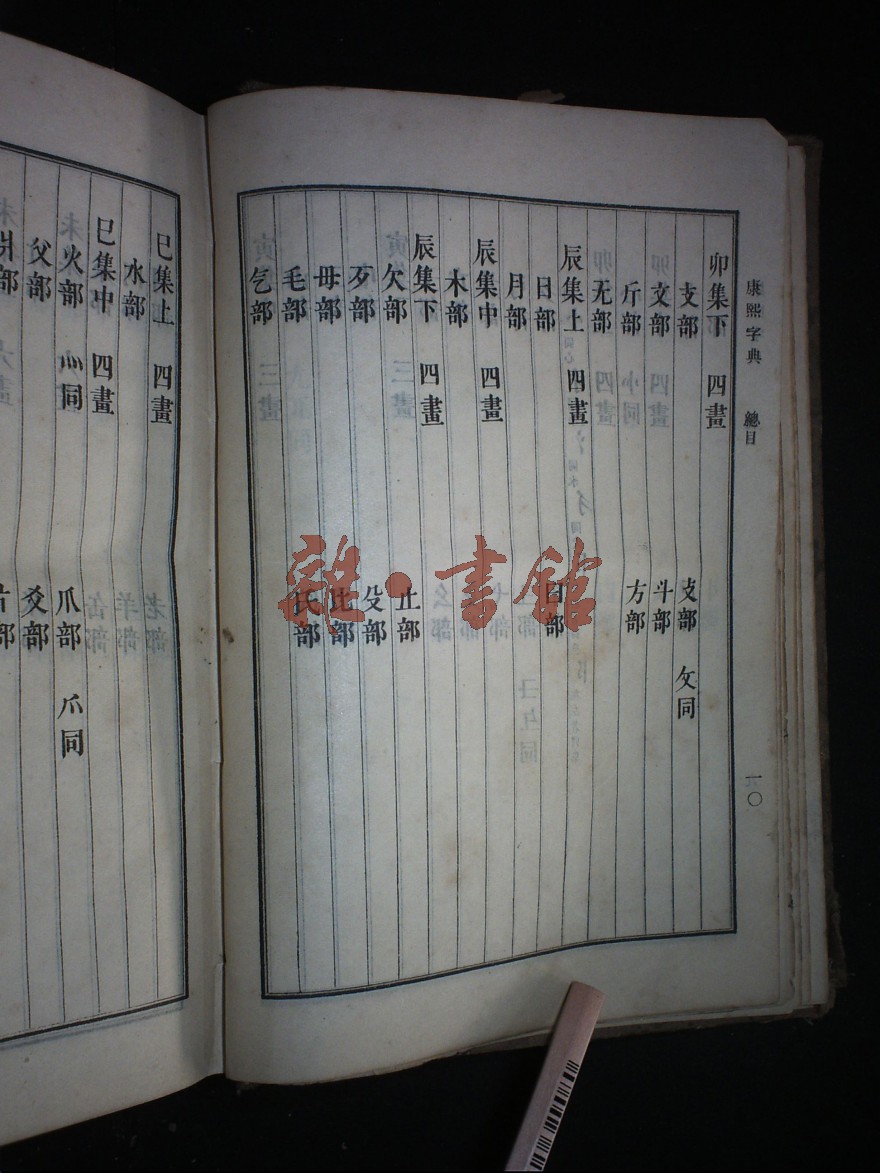 康熙字典 總目
卯集下 四畫
支部 攴部 攵同
文部 斗部
斤部 方部
无部
辰集上 四畫
日部 曰部
月部
辰集中 四畫
木部
辰集下 四畫
欠部 止部
歹部 殳部
毋部 比部
毛部 氏部
气部
一〇
巳集上 四畫
水部
巳集中 四畫
火部 灬同 爪部 爫同
父部 爻部
爿部 片部
雜·書館